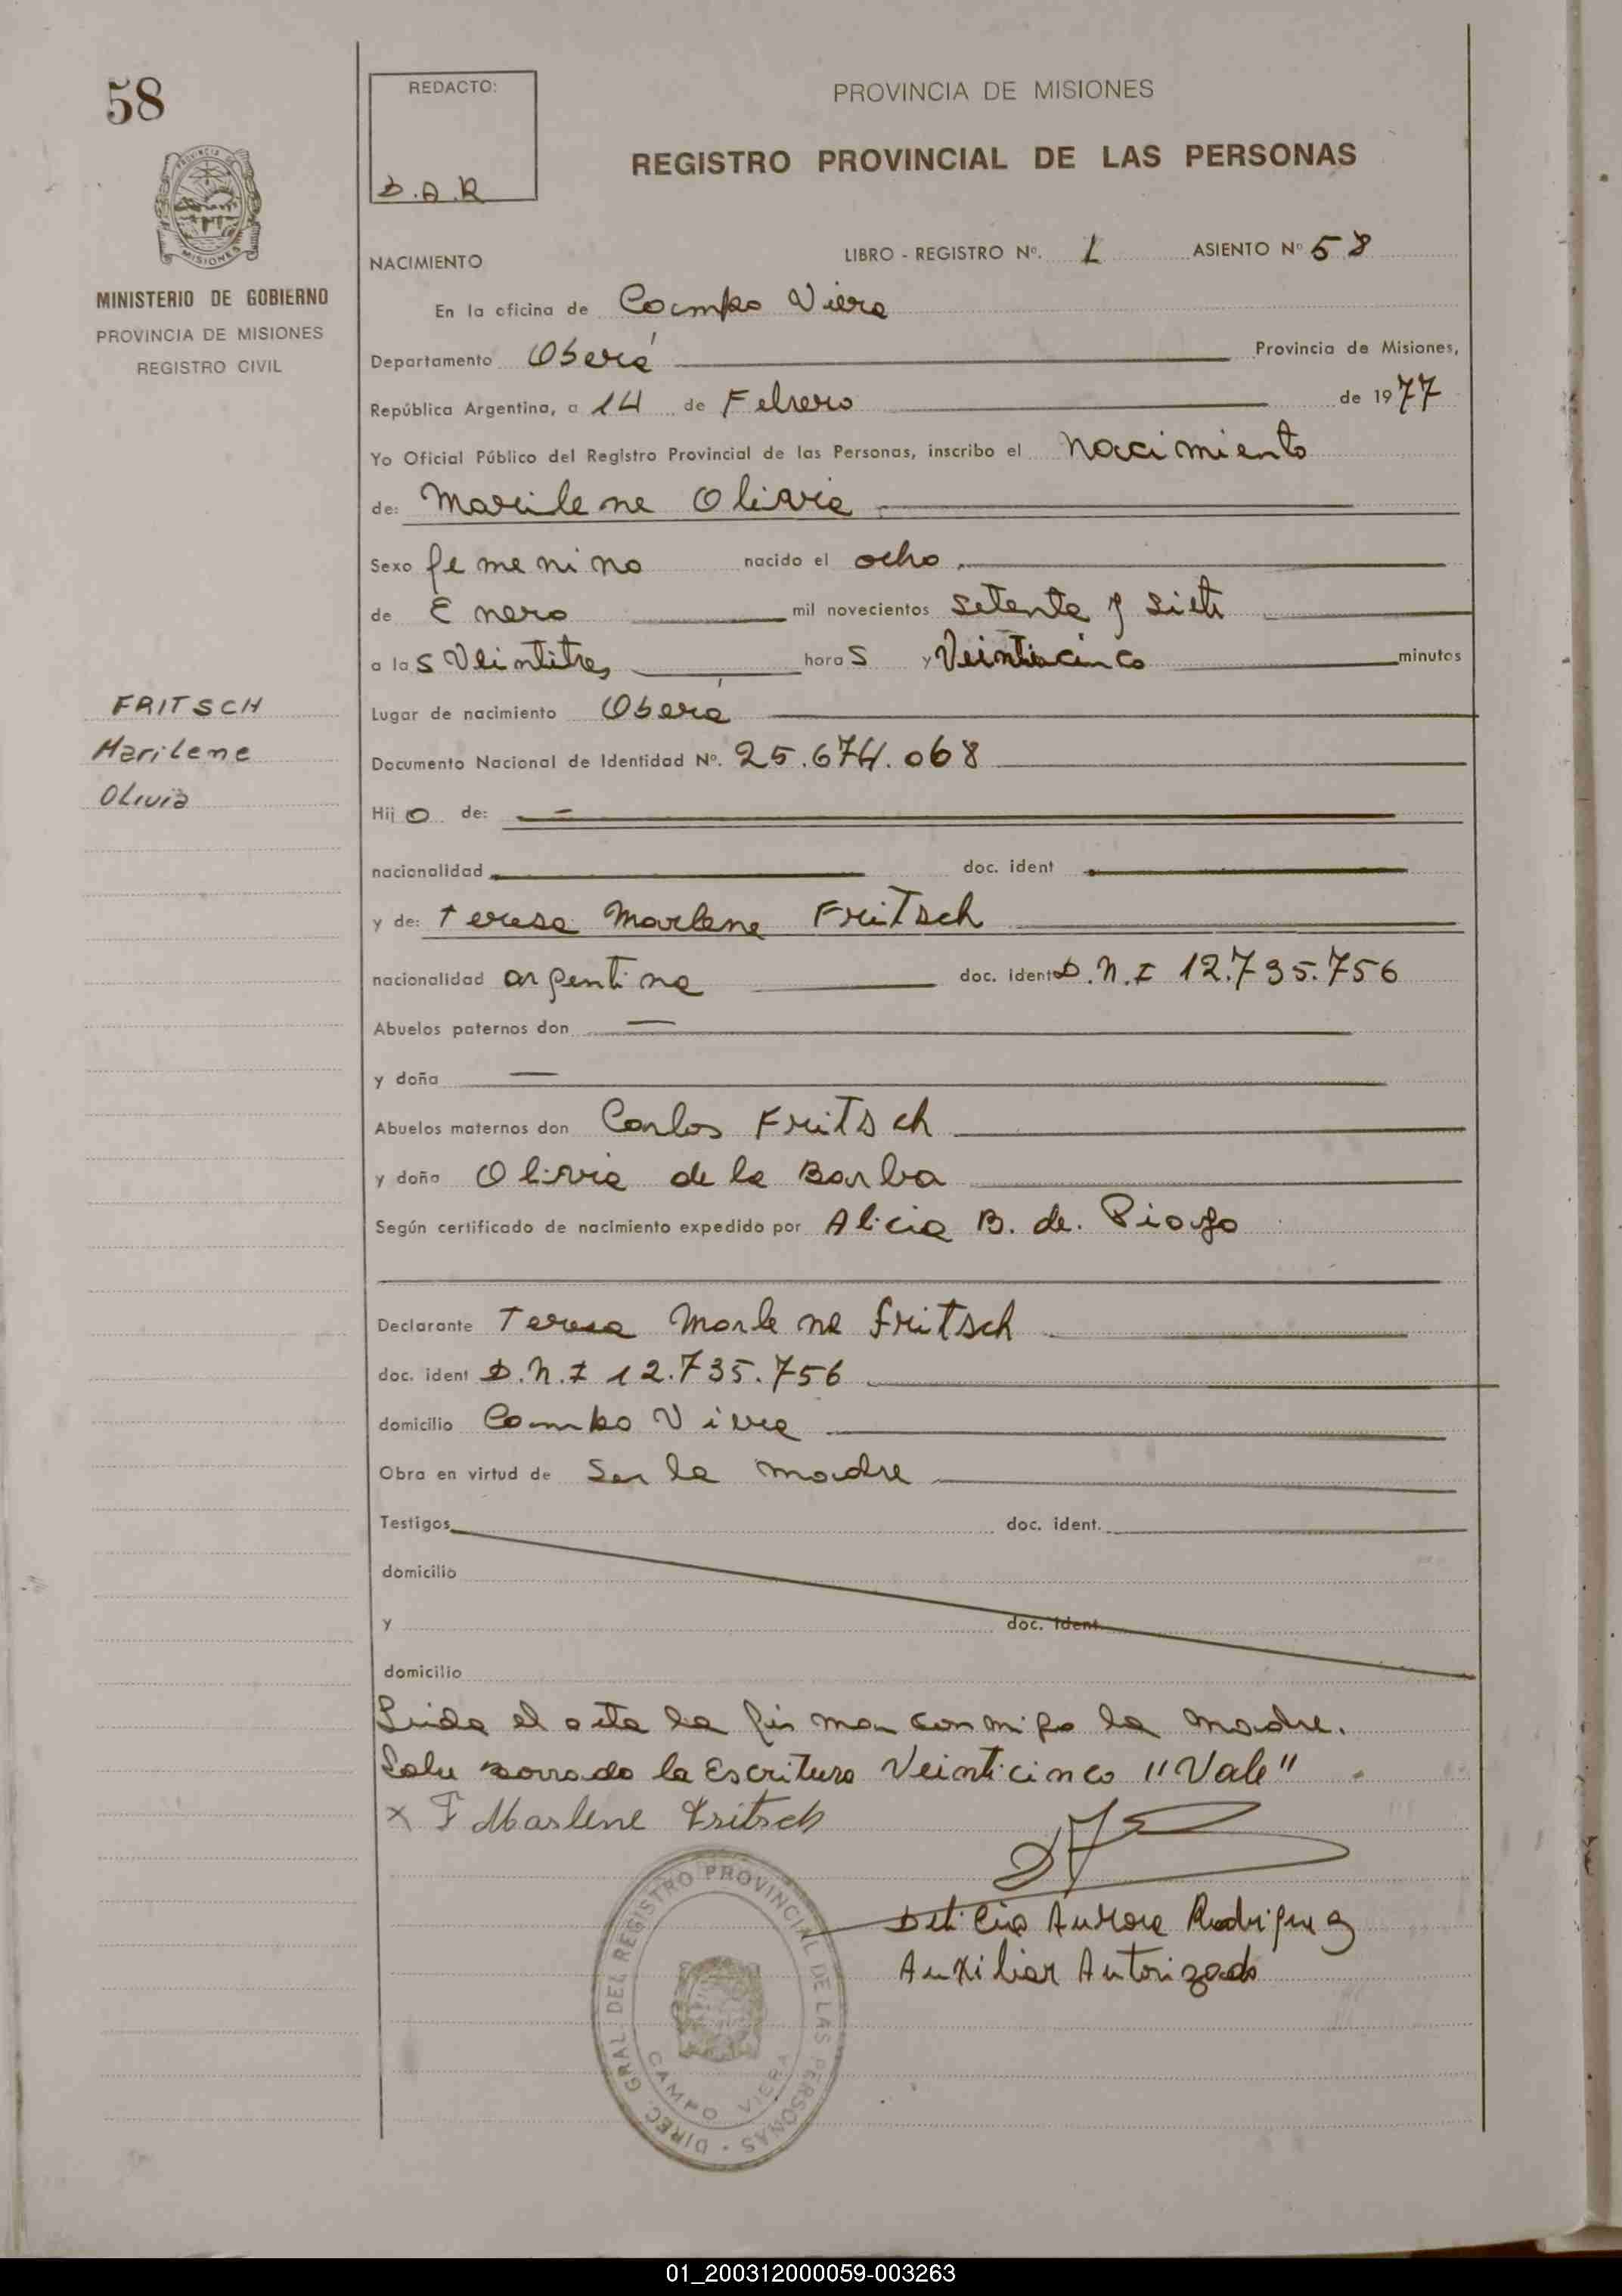 58
REDACTO:
D.A.R
PROVINCIA DE MISIONES
REGISTRO PROVINCIAL DE LAS PERSONAS
PROVINCIA DE
MISIONES
MINISTERIO DE GOBIERNO
PROVINCIA DE MISIONES
REGISTRO CIVIL
NACIMIENTO
LIBRO - REGISTRO Nº. 1 ASIENTO Nº 58
En la oficina de Campo Viera
Departamento Oberá Provincia de Misiones,
República Argentina, a 14 de Febrero de 1977
Yo Oficial Público del Registro Provincial de las Personas, inscribo el Nacimiento
de: Marilene Olivia
Sexo femenino nacido el ocho
de Enero mil novecientos setenta y siete
a las Veintitres horas y Veinticinco minutos
FRITSCH
Marilene
Olivia
Lugar de nacimiento Oberá
Documento Nacional de Identidad Nº. 25.674.068
Hijo de: —
nacionalidad doc. ident
y de: Teresa Marlene Fritsch
nacionalidad argentina doc. ident D.N.I 12.735.756
Abuelos paternos don —
y doña —
Abuelos maternos don Carlos Fritsch
y doña Olivia de la Barba
Según certificado de nacimiento expedido por Alicia B. de.
Declarante Teresa Marlene Fritsch
doc. ident D.N.I 12.735.756
domicilio Campo Viera
Obra en virtud de Ser la madre
Testigos doc. ident.
domicilio
y doc. ident
domicilio
Leida el acta la firma conmigo la madre.
borrado la Escritura Veinticinco "Vale"
x T Marlene Fritsch
Delicia Aurora Rodriguez
Auxiliar Autorizado
DIREC. GRAL. DEL REGISTRO PROVINCIAL DE LAS PERSONAS
CAMPO VIERA
01_200312000059-003263